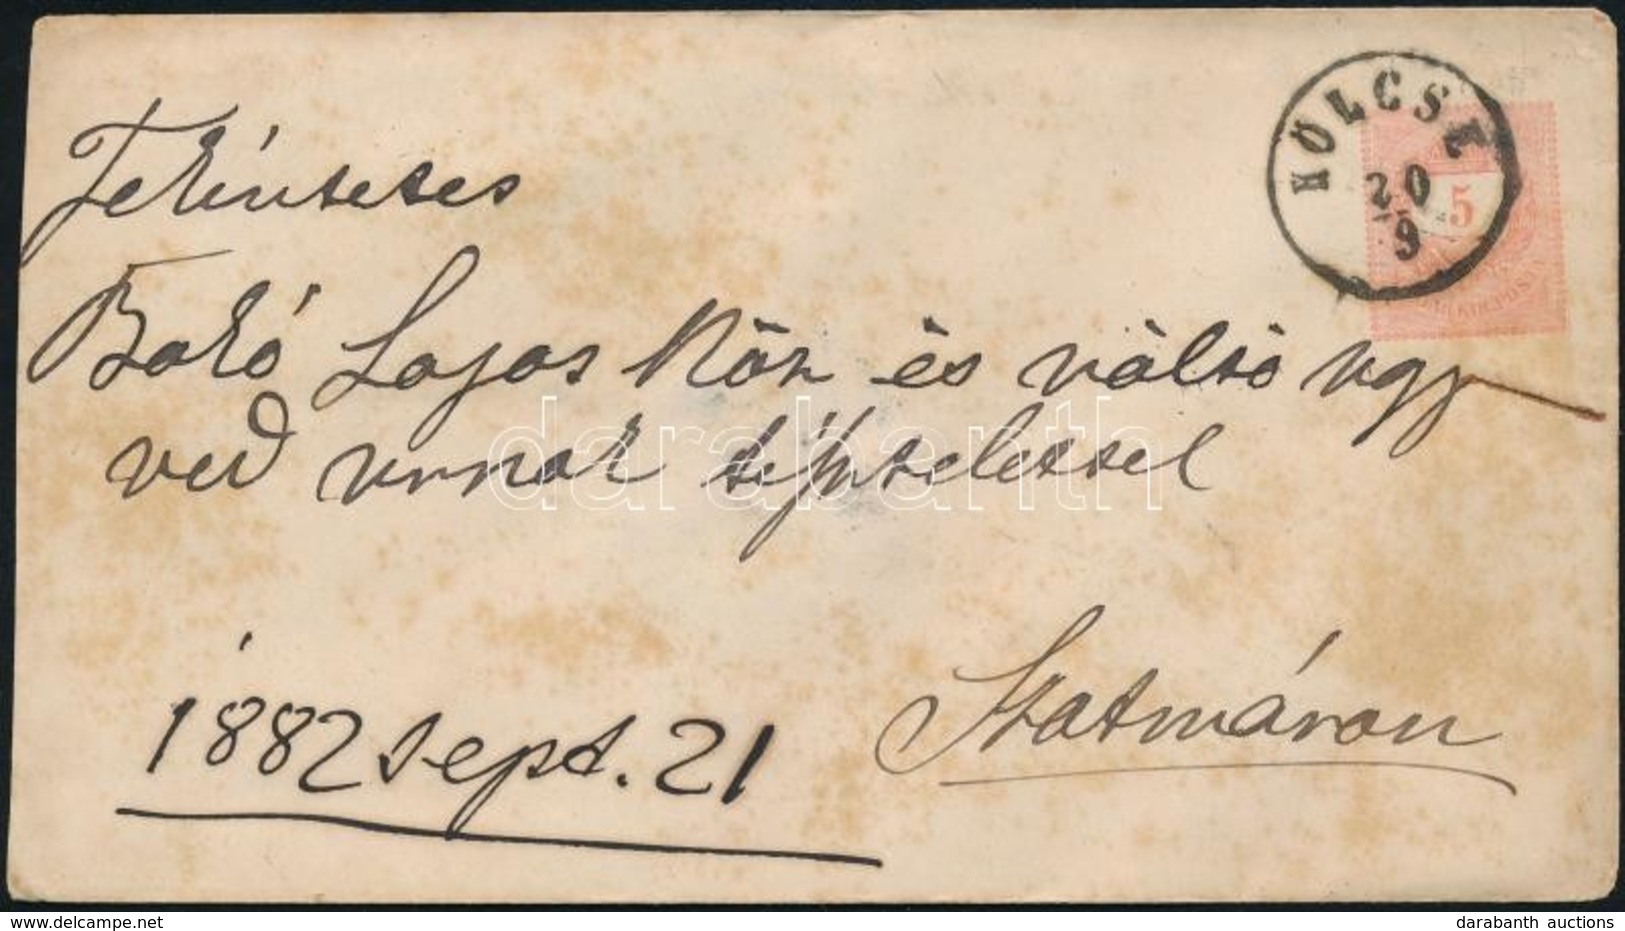 KÖLCSE
20
9
5
Tekintetes
Bakó Lajos Köz és váltó ügy
véd urnak tisztelettel
Szatmáron
1882 sept. 21
darabanth
www.delcampe.net
darabanth auctions